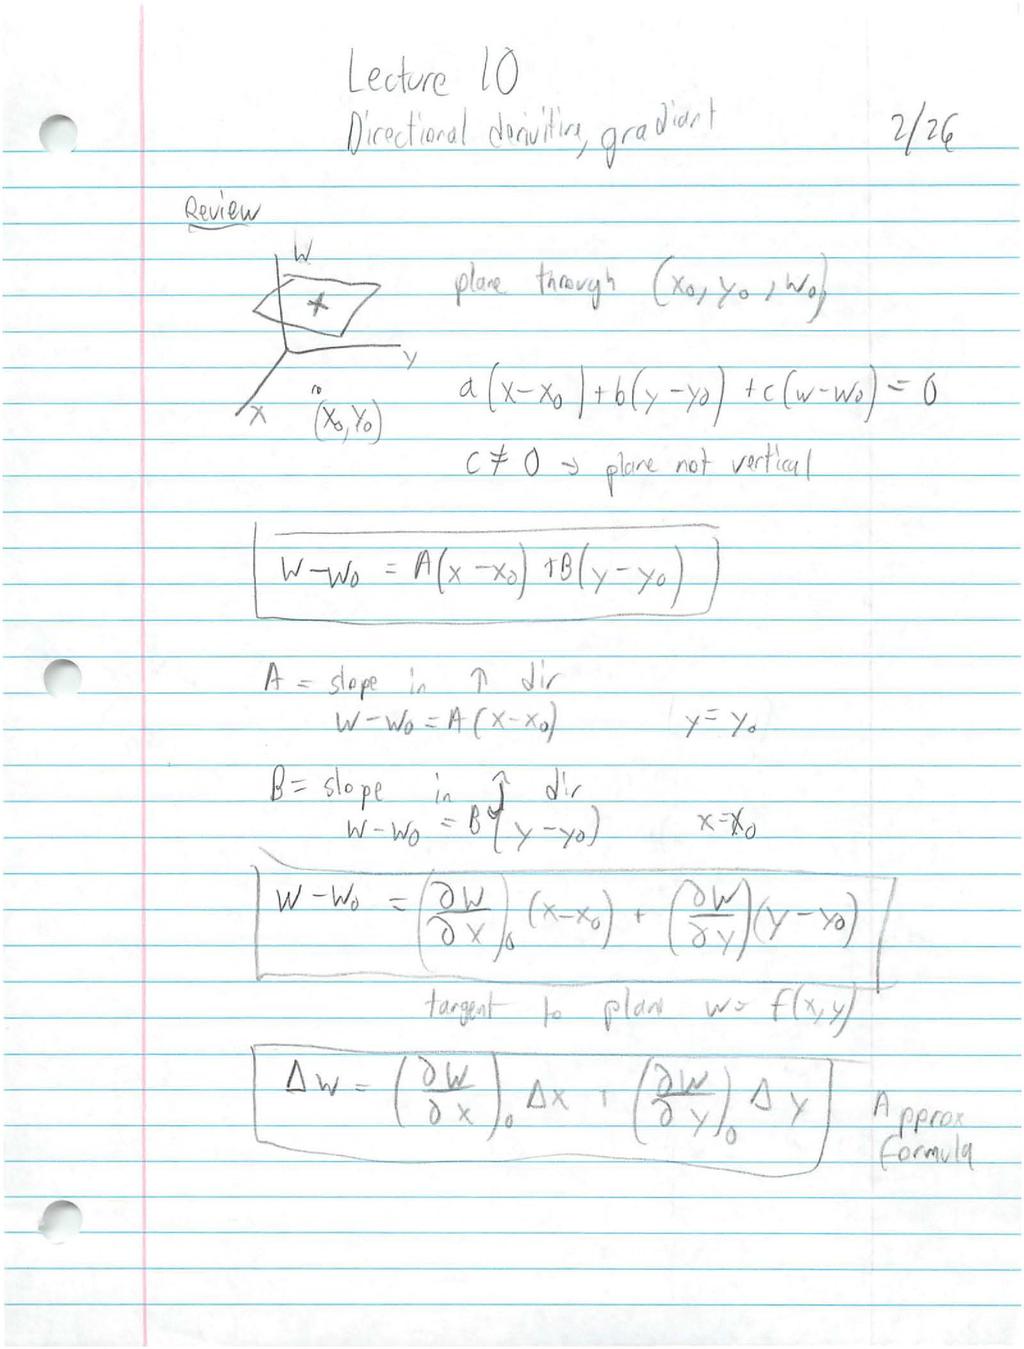 Lecture 10
Directional derivitive, gradiant 2/26
Review
W
plane through (x₀, y₀, w₀)
y
x
(x₀, y₀)
a(x-x₀)+b(y-y₀)+c(w-w₀)=0
c≠0 → plane not vertical
w-w₀ = A(x-x₀)+B(y-y₀)
A = slope in ↑ dir
w-w₀ = A(x-x₀) y=y₀
B = slope in ↑ dir
w-w₀ = B(y-y₀) x=x₀
w-w₀ = (∂w/∂x)₀ (x-x₀) + (∂w/∂y)(y-y₀)
tangent to plane w= f(x,y)
Δw = (∂w/∂x)₀ Δx + (∂w/∂y)₀ Δy
Approx
formula